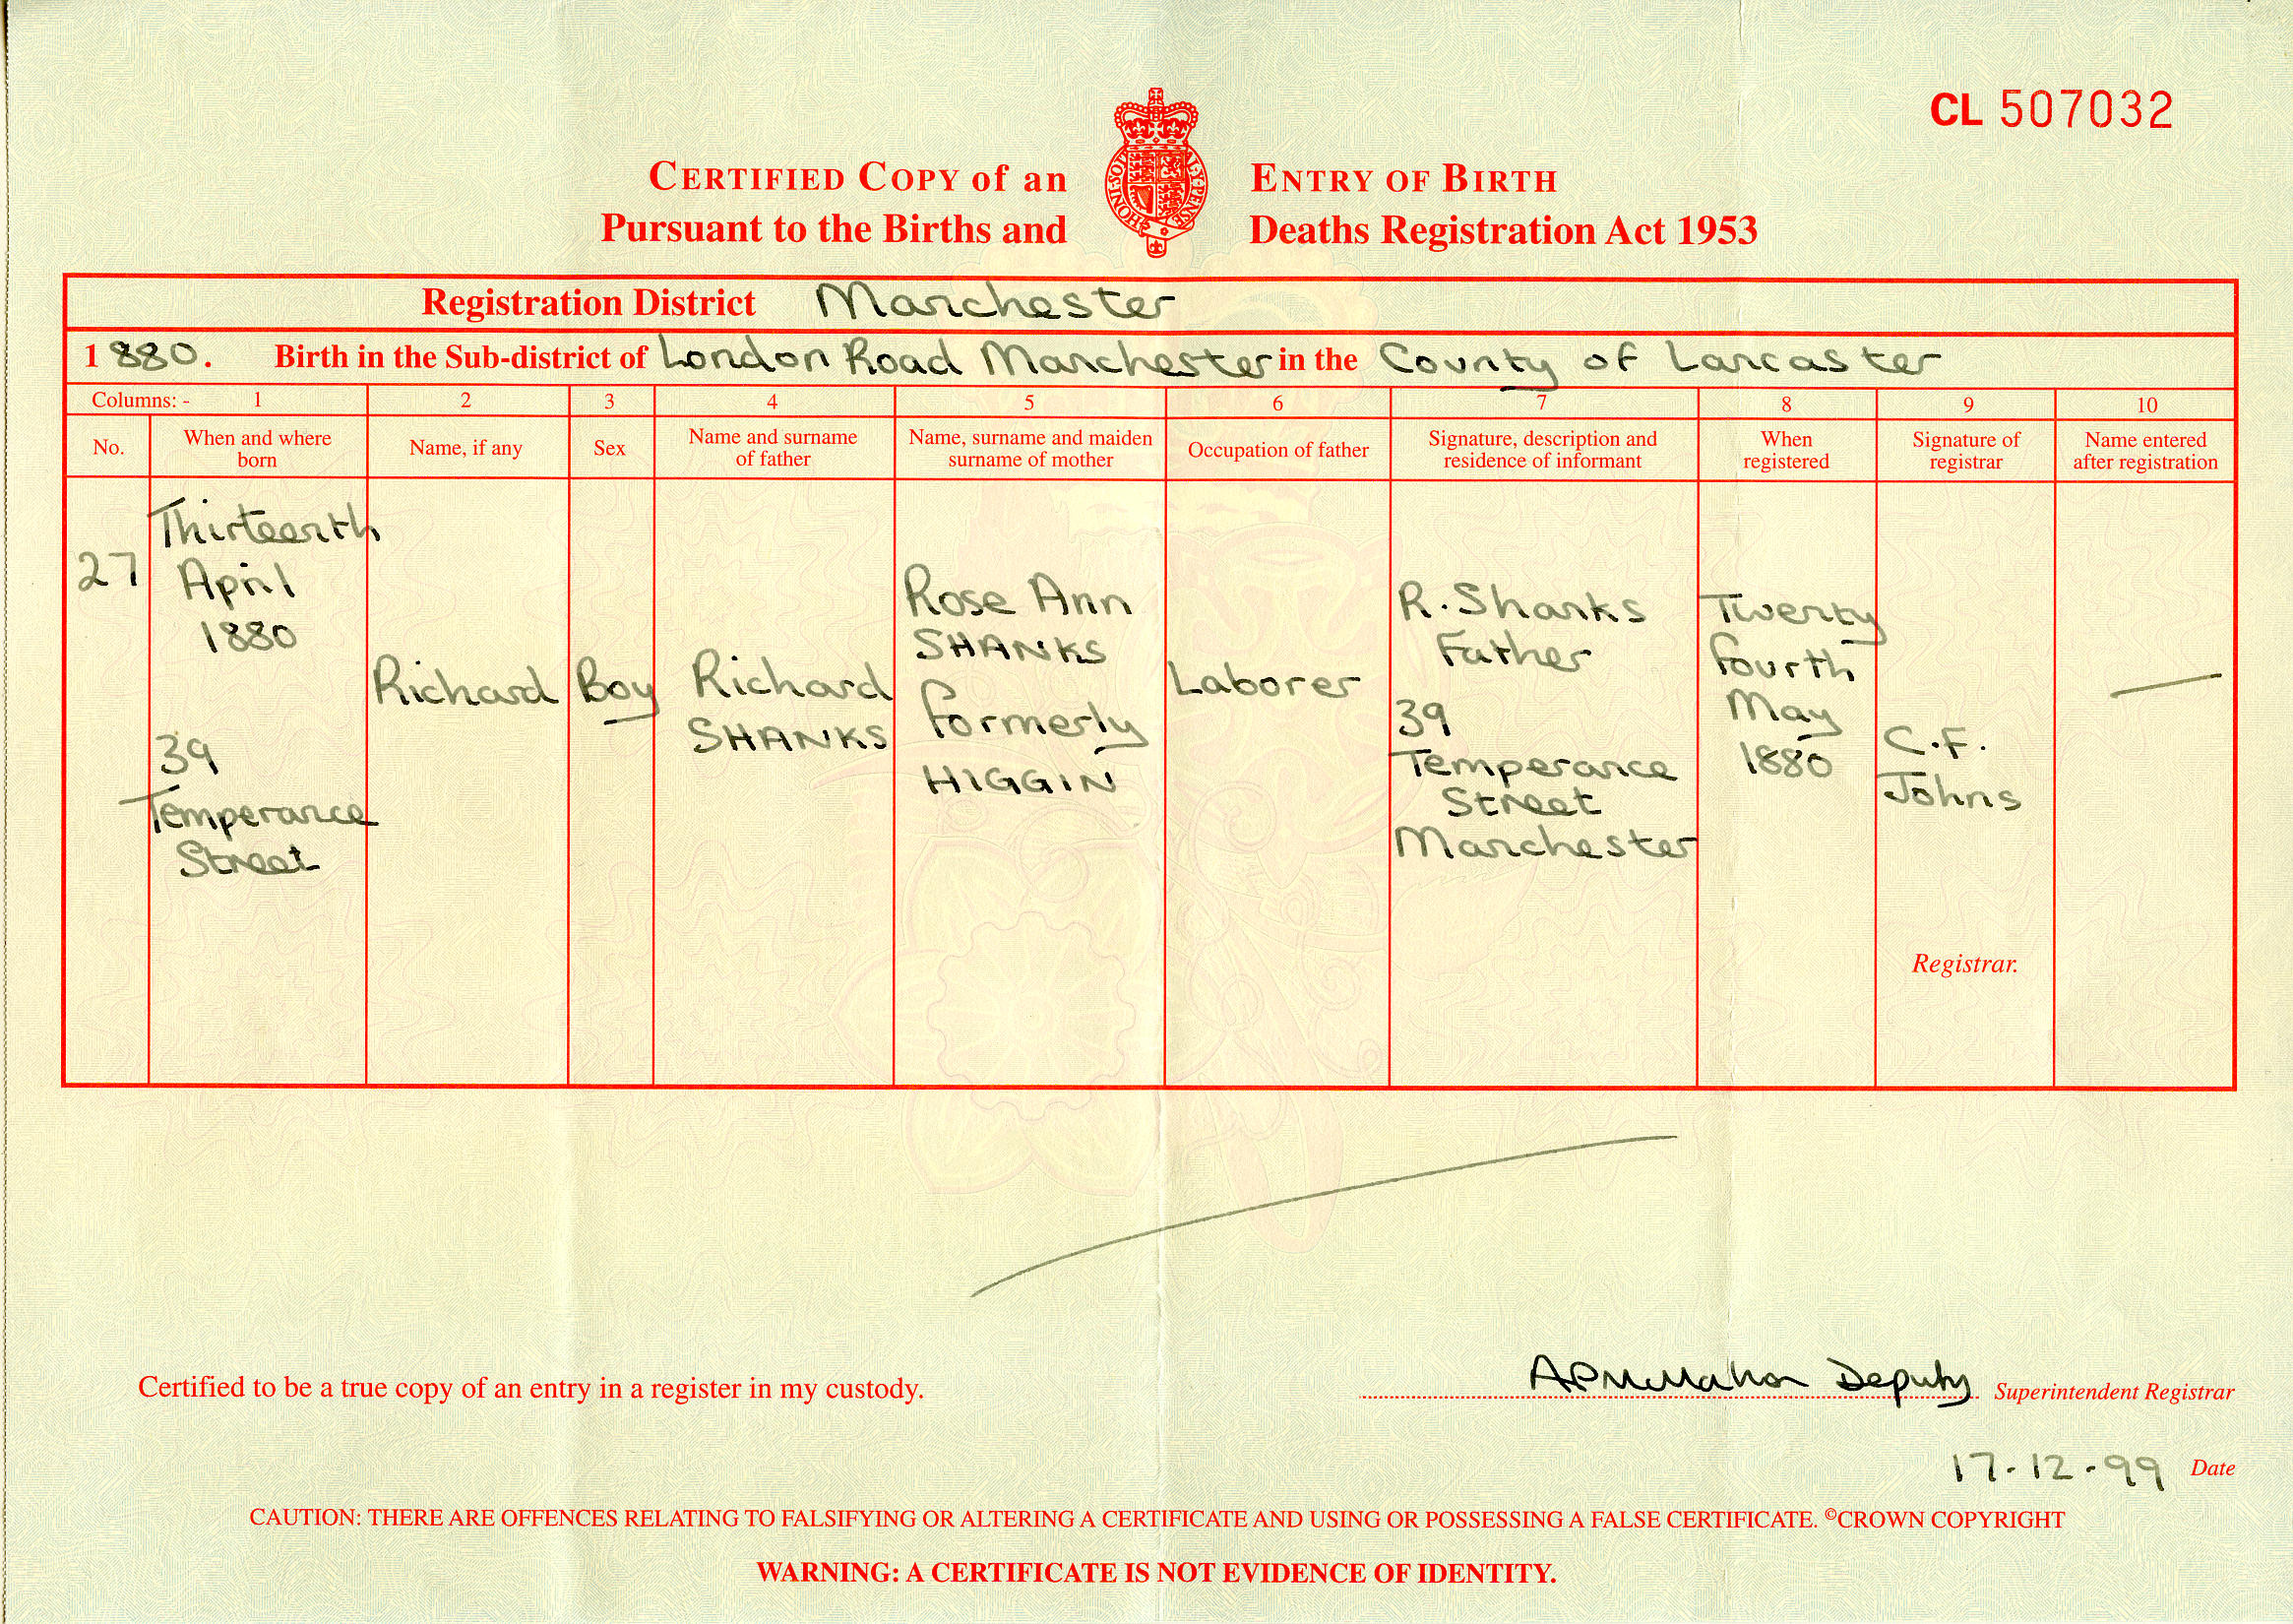 CL 507032
CERTIFIED COPY of an ENTRY OF BIRTH
Pursuant to the Births and Deaths Registration Act 1953
HONI·SOIT Y·PENSE
Registration District Manchester
1880. Birth in the Sub-district of London Road Manchester in the County of Lancaster
Columns: - 1 2 3 4 5 6 7 8 9 10
No.
When and where
born
Name, if any
Sex
Name and surname
of father
Name, surname and maiden
surname of mother
Occupation of father
Signature, description and
residence of informant
When
registered
Signature of
registrar
Name entered
after registration
27
Thirteenth
April
1880
39
Temperance
Street
Richard
Boy
Richard
SHANKS
Rose Ann
SHANKS
formerly
HIGGIN
Laborer
R. Shanks
Father
39
Temperance
Street
Manchester
Twenty
fourth
May
1880
C.F.
Johns
Registrar.
Certified to be a true copy of an entry in a register in my custody.
APMcMahon Deputy Superintendent Registrar
17-12-99 Date
CAUTION: THERE ARE OFFENCES RELATING TO FALSIFYING OR ALTERING A CERTIFICATE AND USING OR POSSESSING A FALSE CERTIFICATE. ©CROWN COPYRIGHT
WARNING: A CERTIFICATE IS NOT EVIDENCE OF IDENTITY.